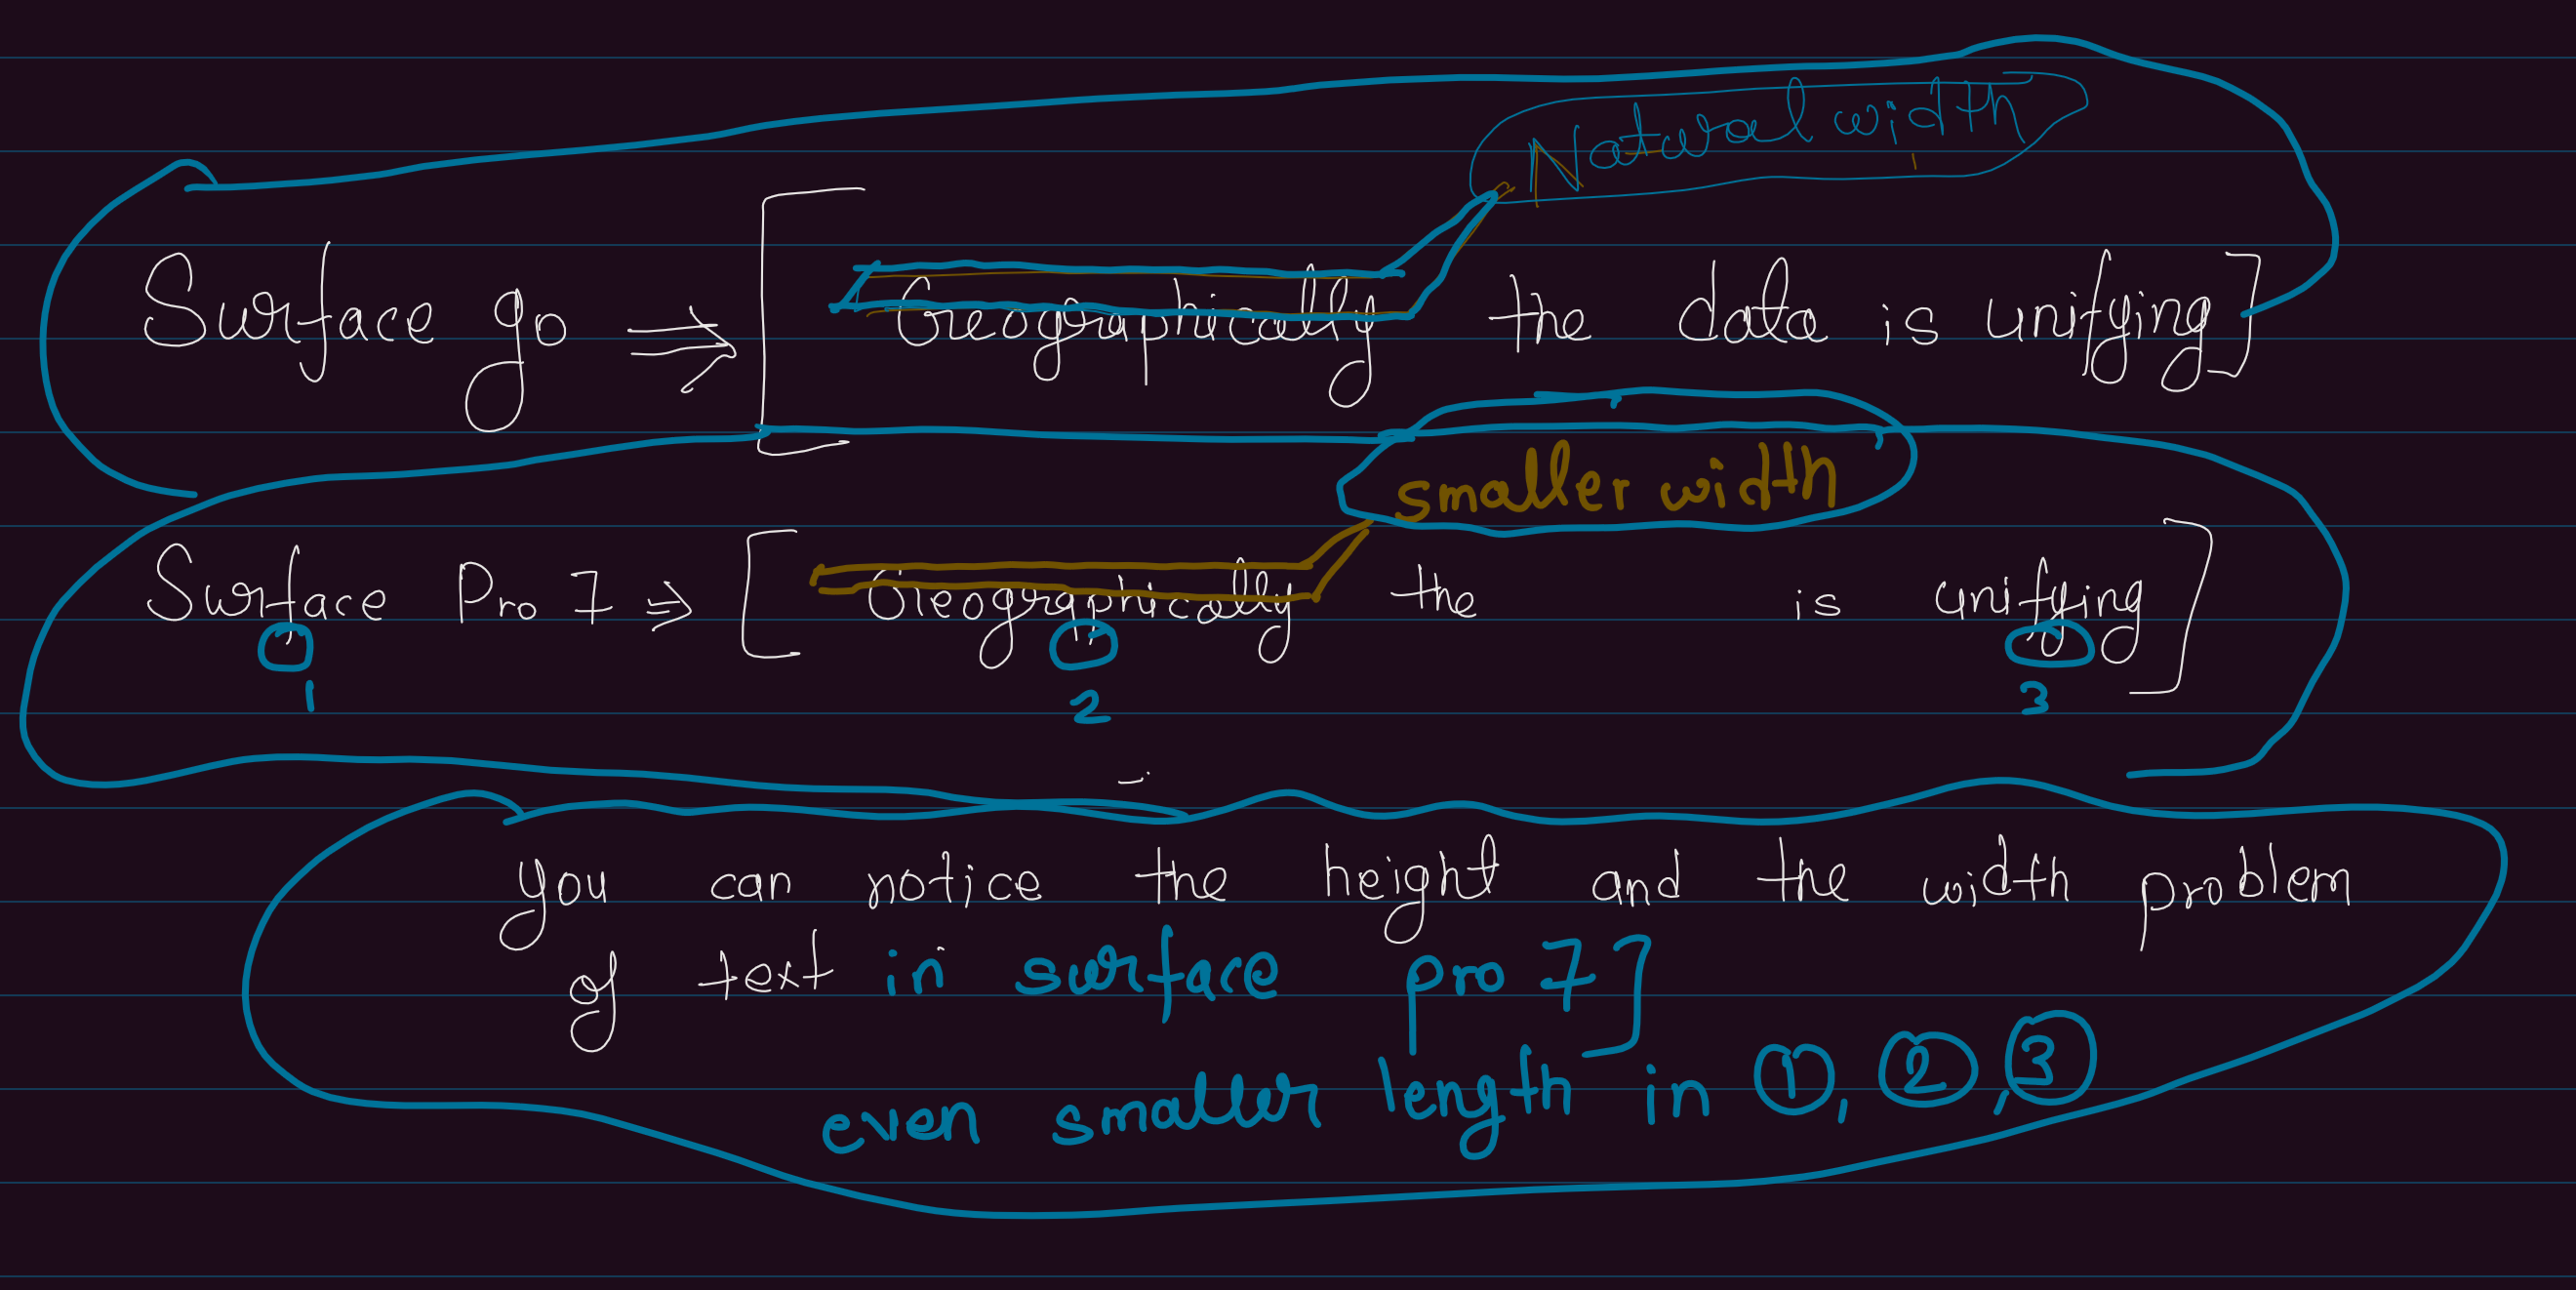 Natural width
Surface go ⇒ [ Geographically the data is unifying ]
smaller width
Surface Pro 7 ⇒ [ Geographically the is unifying ]
1 2 3
you can notice the height and the width problem
of text in surface pro 7 ]
even smaller length in ①, ②, ③